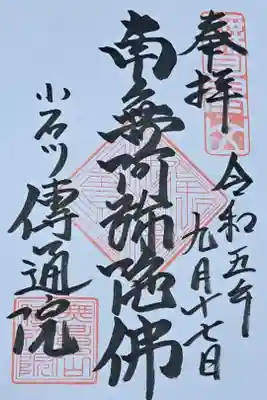 奉拝
令和五年
九月十七日
南無阿弥陀佛
小石川
傳通院